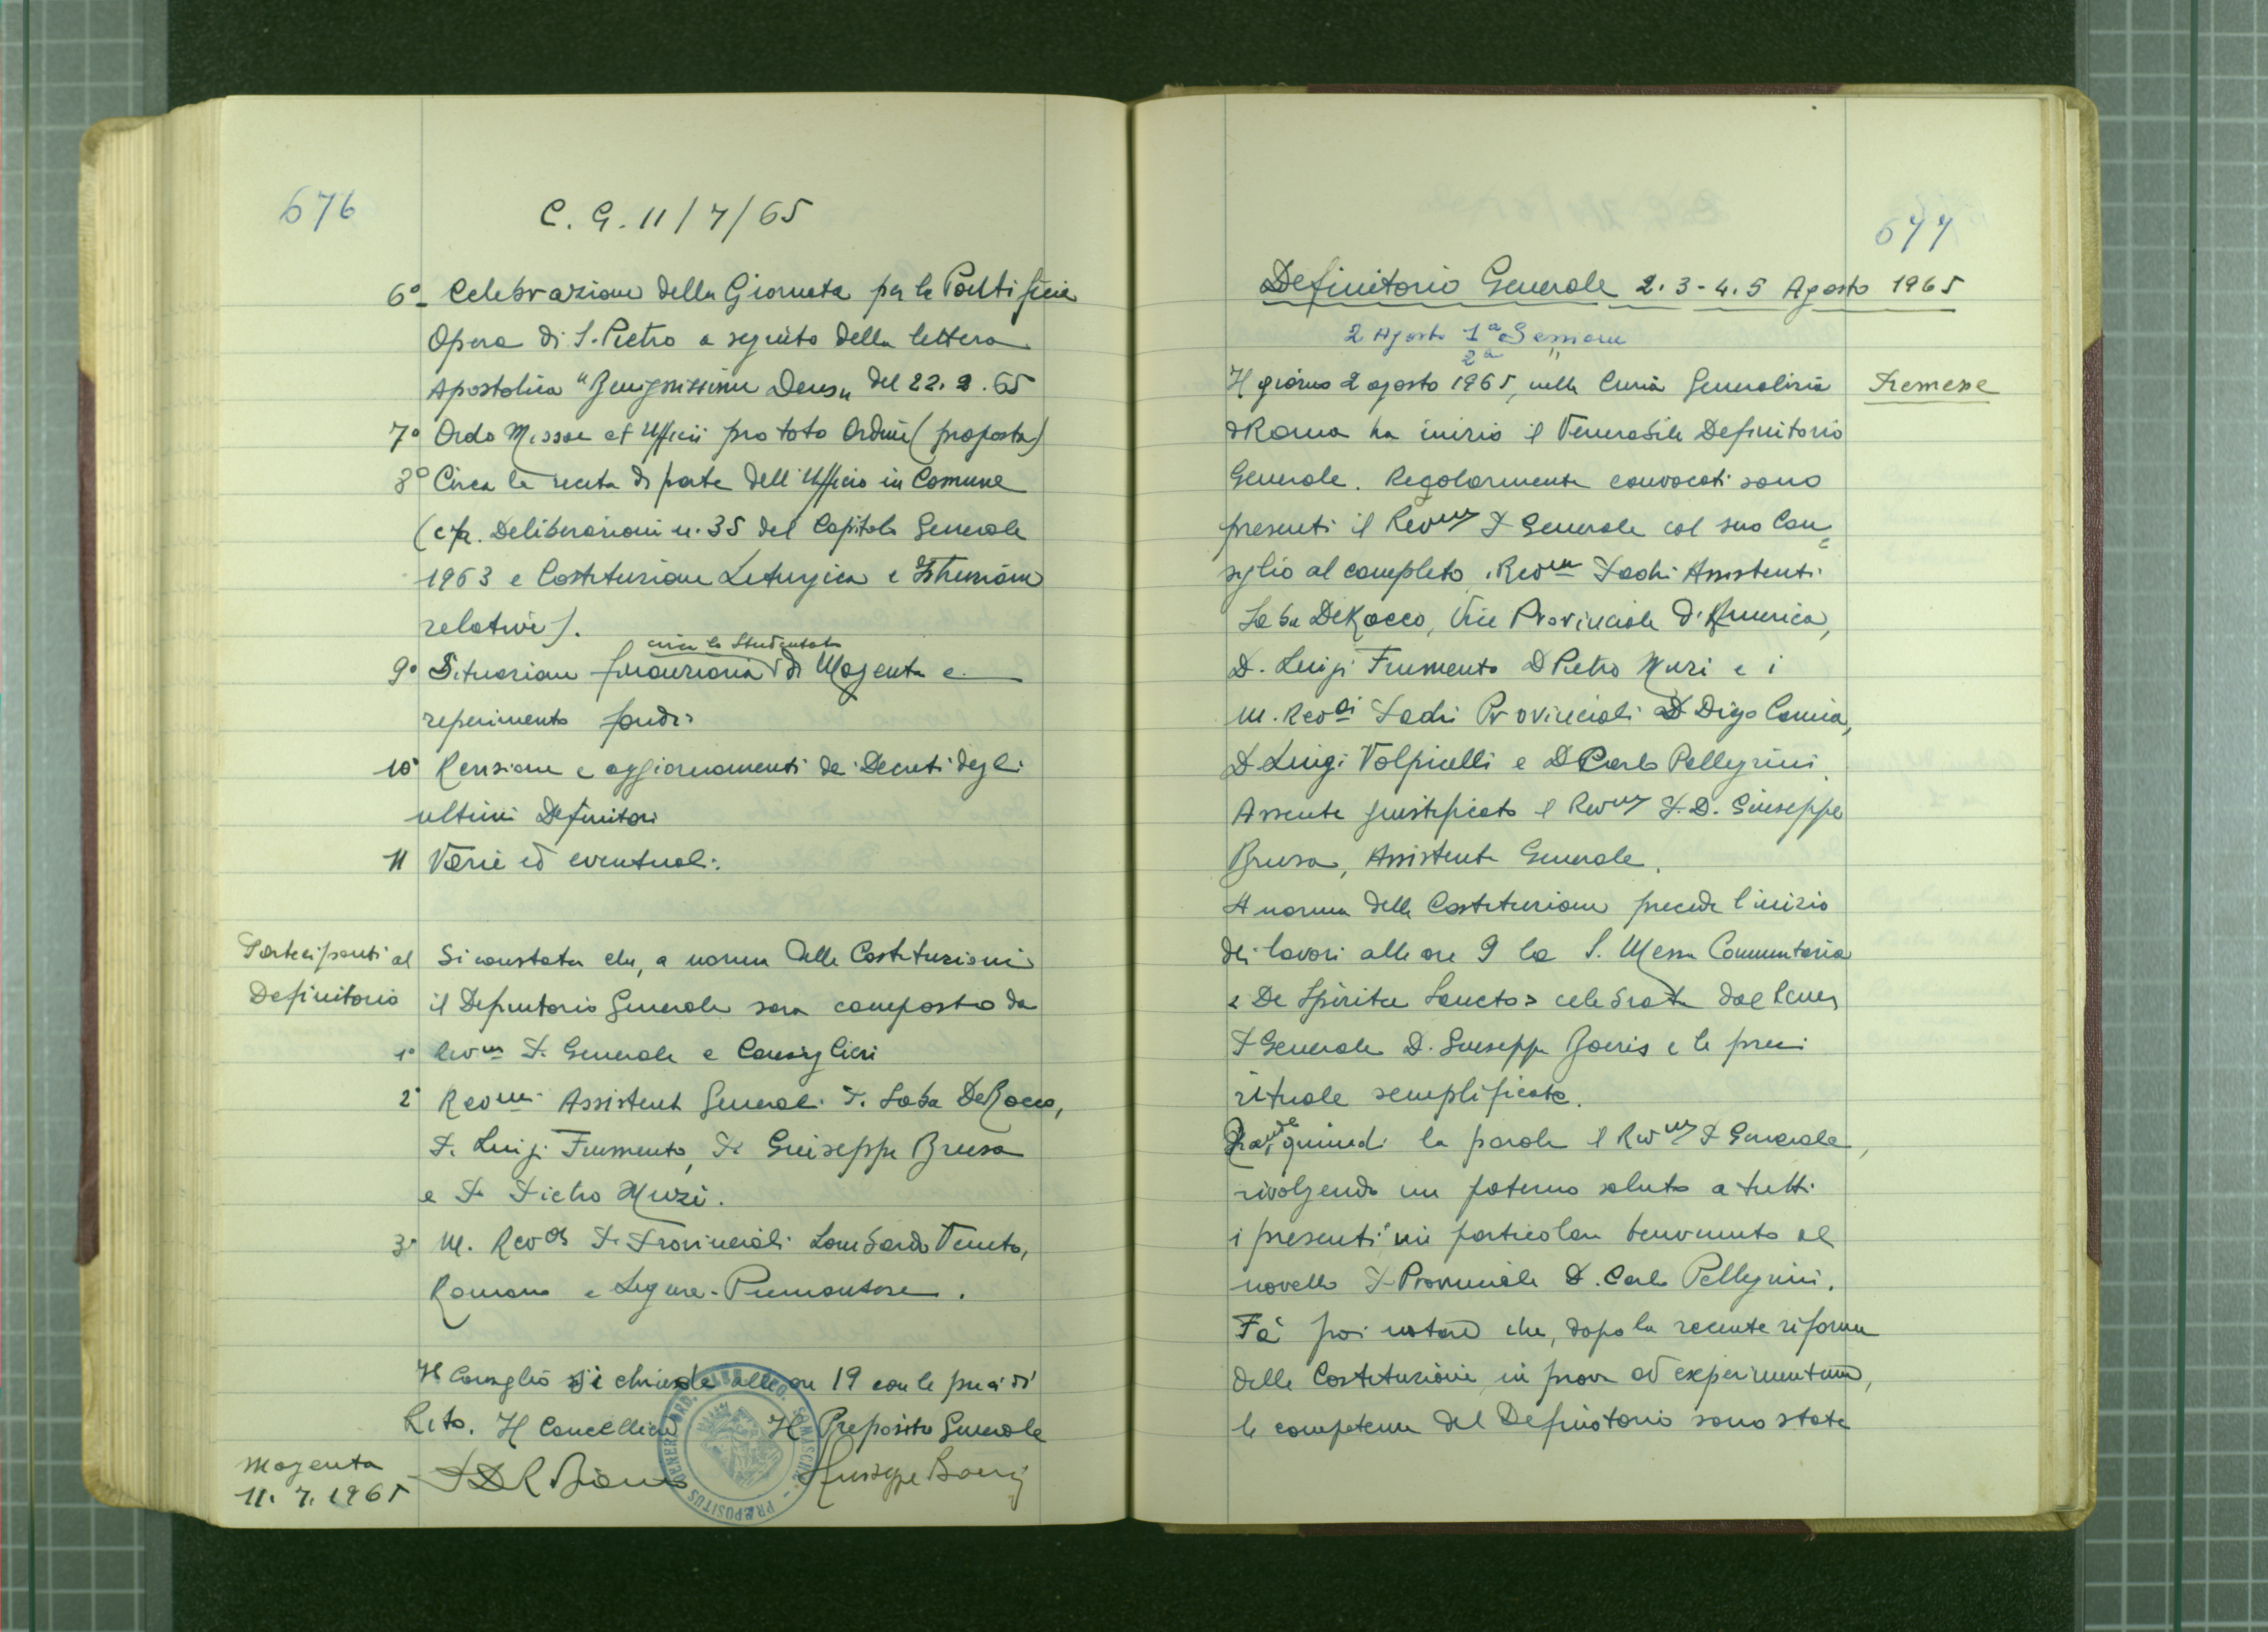 676
C. G. 11/7/65
6° - Celebrazione della Giornata per la Pontificia
Opera di S. Pietro a seguito della lettera
Apostolica "Benignissimus Deus" del 22.2.65
7° Ordo Missae et Officii pro toto Ordine (proposta)
8° Circa la recita di parte dell'Ufficio in Comune
(cfr. Deliberazioni n. 35 del Capitolo Generale
1963 e Costituzione Liturgica e Istruzione
relative).
circa lo Studentato
9° Situazione finanziaria di Magenta e
reperimento fondi
10° Revisione e aggiornamenti dei Decreti degli
ultimi Definitori
11 Varie ed eventuali.
Partecipanti al
Definitorio
Si constata che, a norma delle Costituzioni
il Definitorio Generale sara composto da
1° Rev.mo P. Generale e Consiglieri
2° Rev.mi Assistenti Generali P. Saba De Rocco,
P. Luigi Frumento, P. Giuseppe Brusa
e P. Pietro Muzi.
3° M. Rev.di P. Provinciali Lombardo Veneto,
Romano e Ligure-Piemontese.
Il Consiglio si chiude alle ore 19 con le preci di
Rito. Il Cancelliere Il Preposito Generale
Magenta
11.7.1965
Giuseppe Boeris
PRAEPOSITUS GENER. ORD. SOMASCHAE
677
Definitorio Generale 2.3-4.5 Agosto 1965
2 Agosto 1ª Sessione
2ª "
Il giorno 2 agosto 1965, nella Curia Generalizia
Premesse
di Roma ha inizio il Venerabile Definitorio
Generale. Regolarmente convocati sono
presenti il Rev.mo P. Generale col suo Con=
siglio al completo, i Rev.mi Padri Assistenti
Saba De Rocco, Vice Provinciale d'America,
D. Luigi Frumento D Pietro Muzi e i
M. Rev.di Padri Provinciali D Diego Camia,
D. Luigi Volpicelli e D Carlo Pellegrini.
Assente giustificato il Rev.mo P. D. Giuseppe
Brusa, Assistente Generale.
A norma delle Costituzioni precede l'inizio
dei lavori alle ore 9 la S. Messa Comunitaria
« De Spiritu Sancto » celebrata dal Rev.mo
P Generale D. Giuseppe Boeris e le preci
rituale semplificate.
Prende quindi la parola il Rev.mo P Generale,
rivolgendo un paterno saluto a tutti
i presenti un particolare benvenuto al
novello P. Provinciale D. Carlo Pellegrini.
Fà poi notare che, dopo la recente riforma
delle Costituzioni, in prova ad experimentum,
le competenze del Definitorio sono state